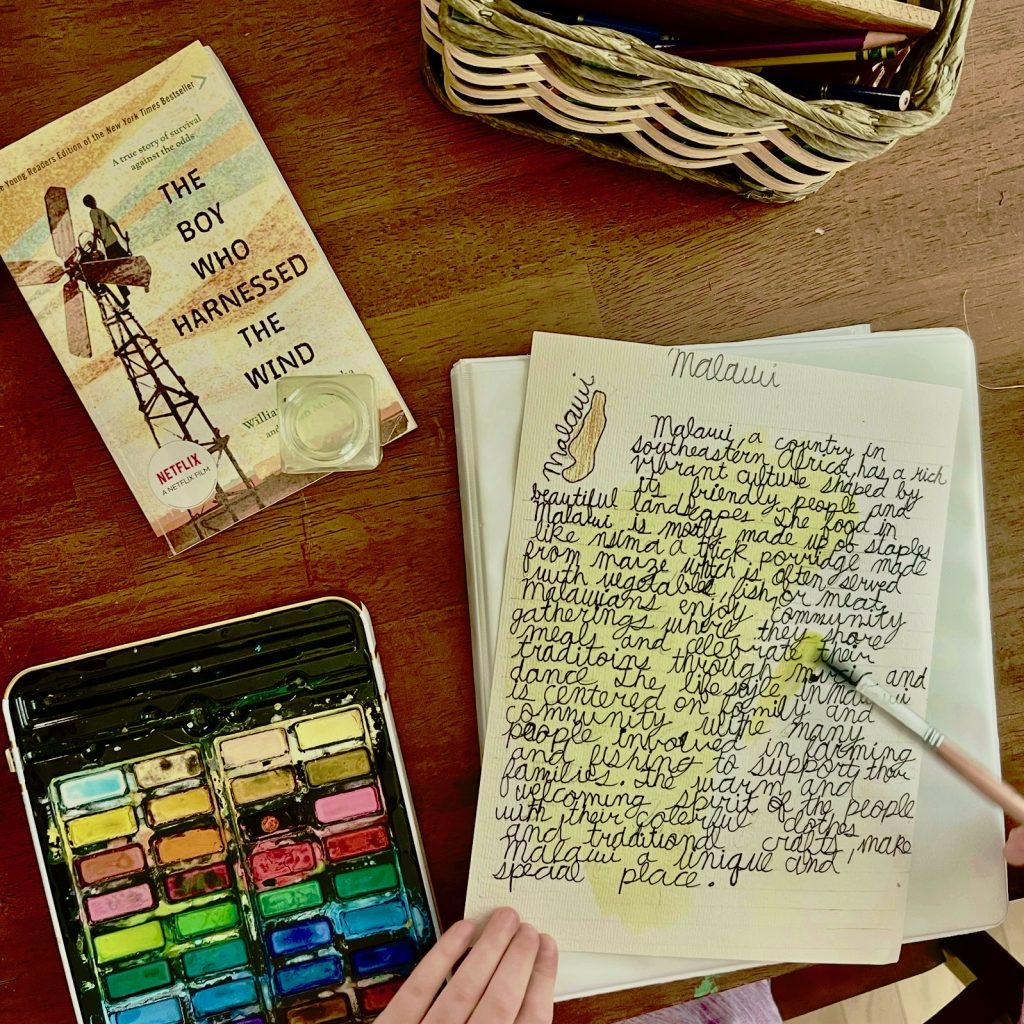 The Young Readers Edition of the New York Times Bestseller
A true story of survival
against the odds
THE
BOY
WHO
HARNESSED
THE
WIND
William
and
NETFLIX
A NETFLIX FILM
Malawi
Malawi
Malawi, a country in
southeastern Africa, has a rich
vibrant culture shaped by
its friendly people and
beautiful landscapes. The food in
Malawi is mostly made up of staples
like nsima a thick porridge made
from maize which is often served
with vegetables, fish, or meat.
Malawians enjoy community
gatherings where they share
meals and celebrate their
traditoins through music and
dance. The lifestyle in Malawi
is centered on family and
community with many
people involved in farming
and fishing to support their
families. The warm and
welcoming spirit of the people
with their colerful clothes
and traditional crafts, make
Malawi a unique and
special place.